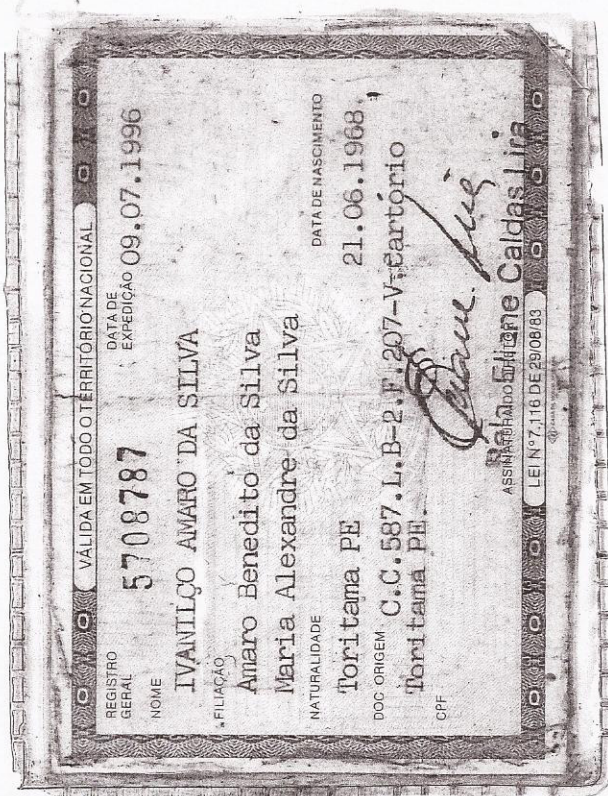 VÁLIDA EM TODO O TERRITÓRIO NACIONAL
REGISTRO GERAL 5708787 DATA DE EXPEDIÇÃO 09.07.1996
NOME
IVANILÇO AMARO DA SILVA
FILIAÇÃO
Amaro Benedito da Silva
Maria Alexandre da Silva
NATURALIDADE DATA DE NASCIMENTO
Toritama PE 21.06.1968
DOC ORIGEM C.C.587.L.B-2.F.207-V.Cartório
Toritama PE.
CPF
Eliane Caldas Lira
ASSINATURA DO DIRETOR
LEI Nº 7.116 DE 29/08/83